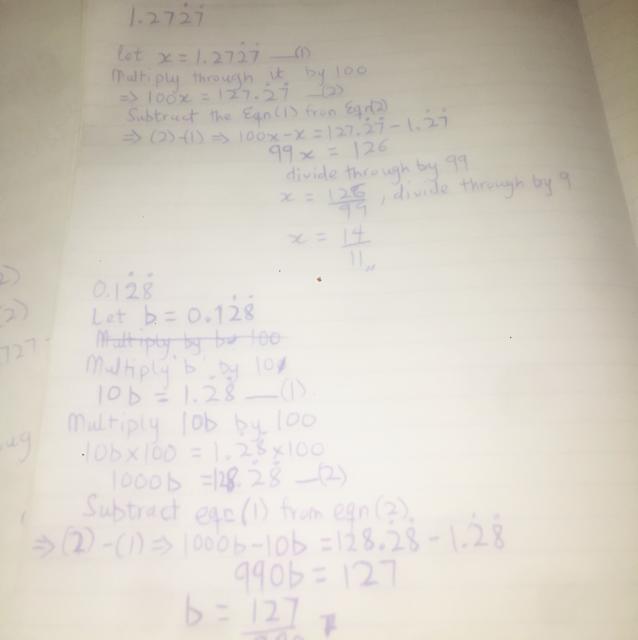 1.272̇7̇
let x = 1.272̇7̇ —(1)
Multiply through it by 100
⇒ 100x = 127.2̇7̇ —(2)
Subtract the Eqn(1) from Eqn(2)
⇒ (2)-(1) ⇒ 100x-x = 127.2̇7̇ - 1.2̇7̇
99x = 126
divide through by 99
x = 126/99, divide through by 9
x = 14/11
0.12̇8̇
Let b = 0.12̇8̇
Multiply by 100
Multiply b by 10
10b = 1.2̇8̇ —(1)
Multiply 10b by 100
10b×100 = 1.2̇8̇×100
1000b = 128.2̇8̇ —(2)
Subtract eqn(1) from eqn(2)
⇒ (2)-(1) ⇒ 1000b-10b = 128.2̇8̇ - 1.2̇8̇
990b = 127
b = 127/990